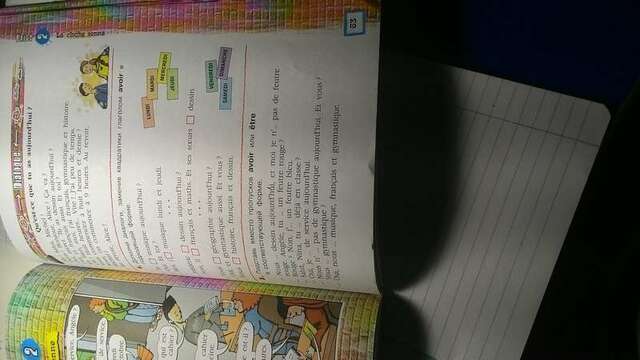 2
enne
ervice, Angèle ?
de service
redi
tobre
qui est
cahier ?
cahier
eine.
e est-il ?
ures
Dialogue
Qu'est-ce que tu as aujourd'hui ?
Michel !
Bonjour, Alice ! Ça va ?
Tu as dessin aujourd'hui ?
aussi. Et toi ?
moi, j'ai français, gymnastique et histoire.
heures. Vite ! J'ai peu de temps.
commencez à huit heures et demie ?
commence à 9 heures. Au revoir,
Alice !
2
диалоги, заменив квадратики глаголом avoir в
форме.
musique aujourd'hui ?
toi ?
musique lundi et jeudi.
LUNDI
MARDI
MERCREDI
JEUDI
dessin aujourd'hui ?
français et maths. Et ses sœurs dessin.
géographie aujourd'hui ?
et gymnastique aussi. Et vous ?
histoire, français et dessin.
VENDREDI
SAMEDI
DIMANCHE
вместо пропусков avoir или être
в соответствующей форме.
Nous ... dessin aujourd'hui, et moi je n'... pas de feutre
rouge. Angèle, tu ... un feutre rouge ?
Rouge ? Non, j'... un feutre bleu.
Nina, tu ... déjà en classe ?
Oui, je ... de service aujourd'hui.
Nous n'... pas de gymnastique aujourd'hui. Et vous ?
Vous ... gymnastique ?
Oui, nous ... musique, français et gymnastique.
63